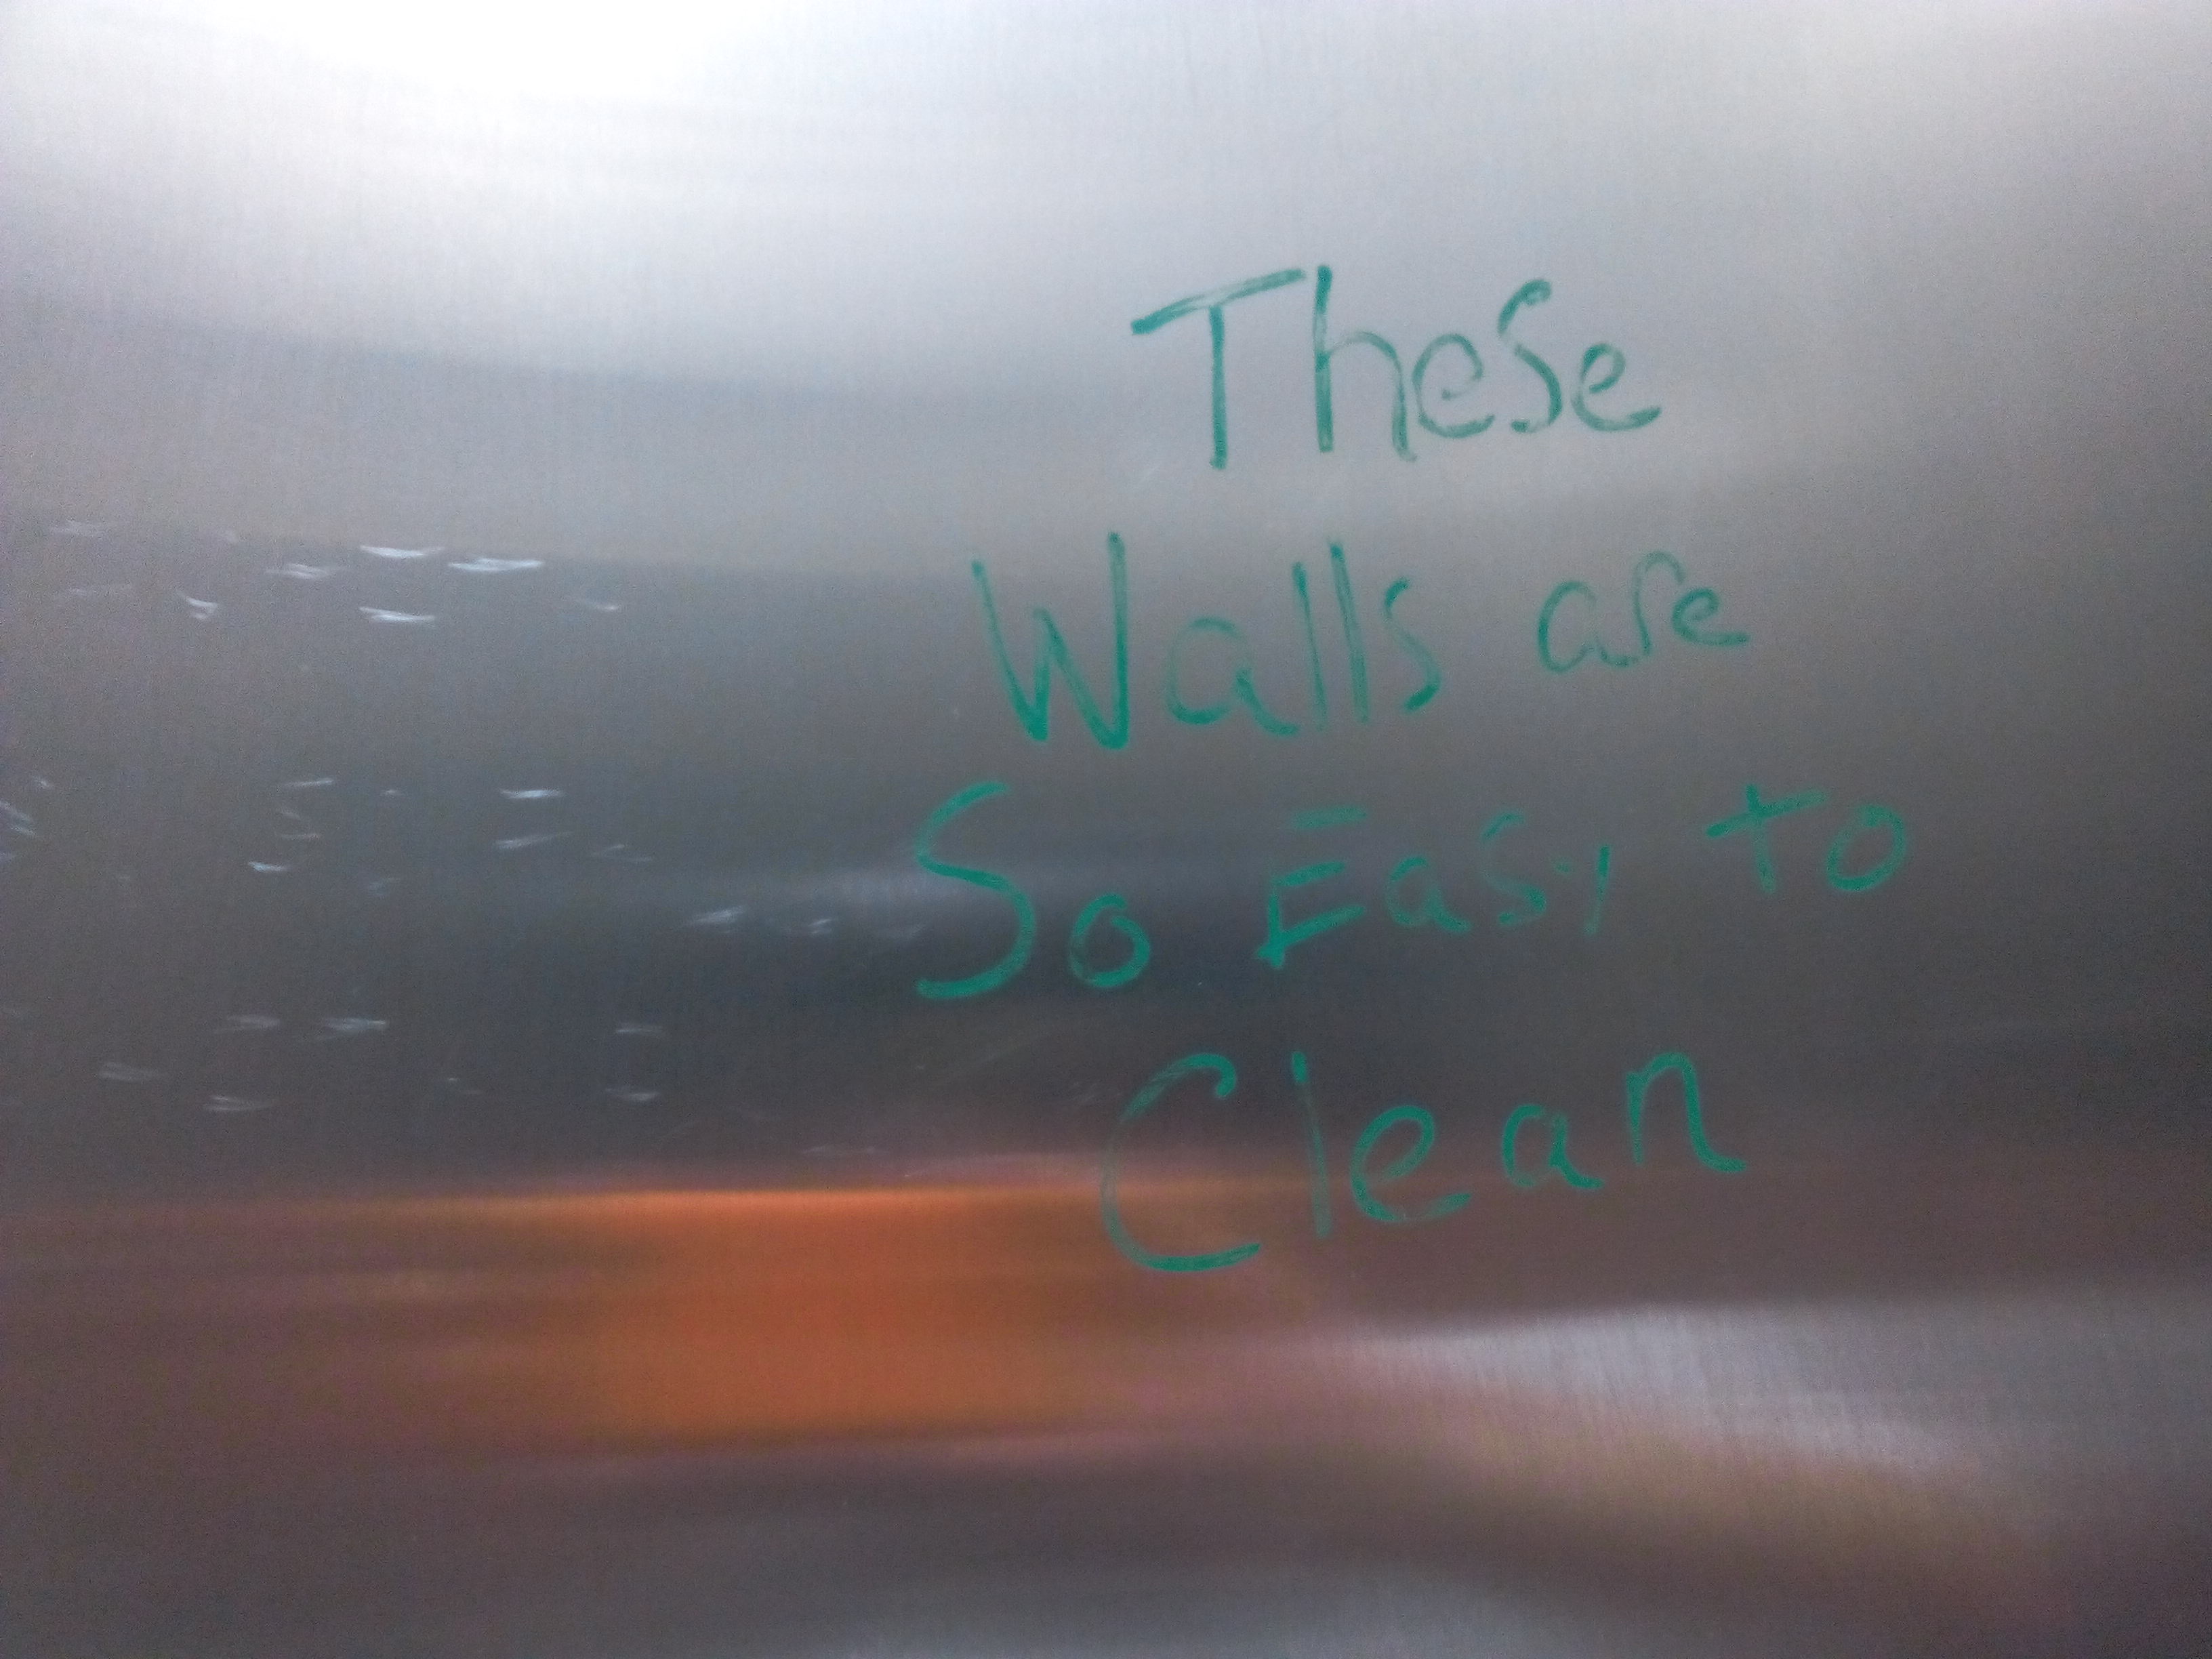 These
Walls are
So Easy to
Clean